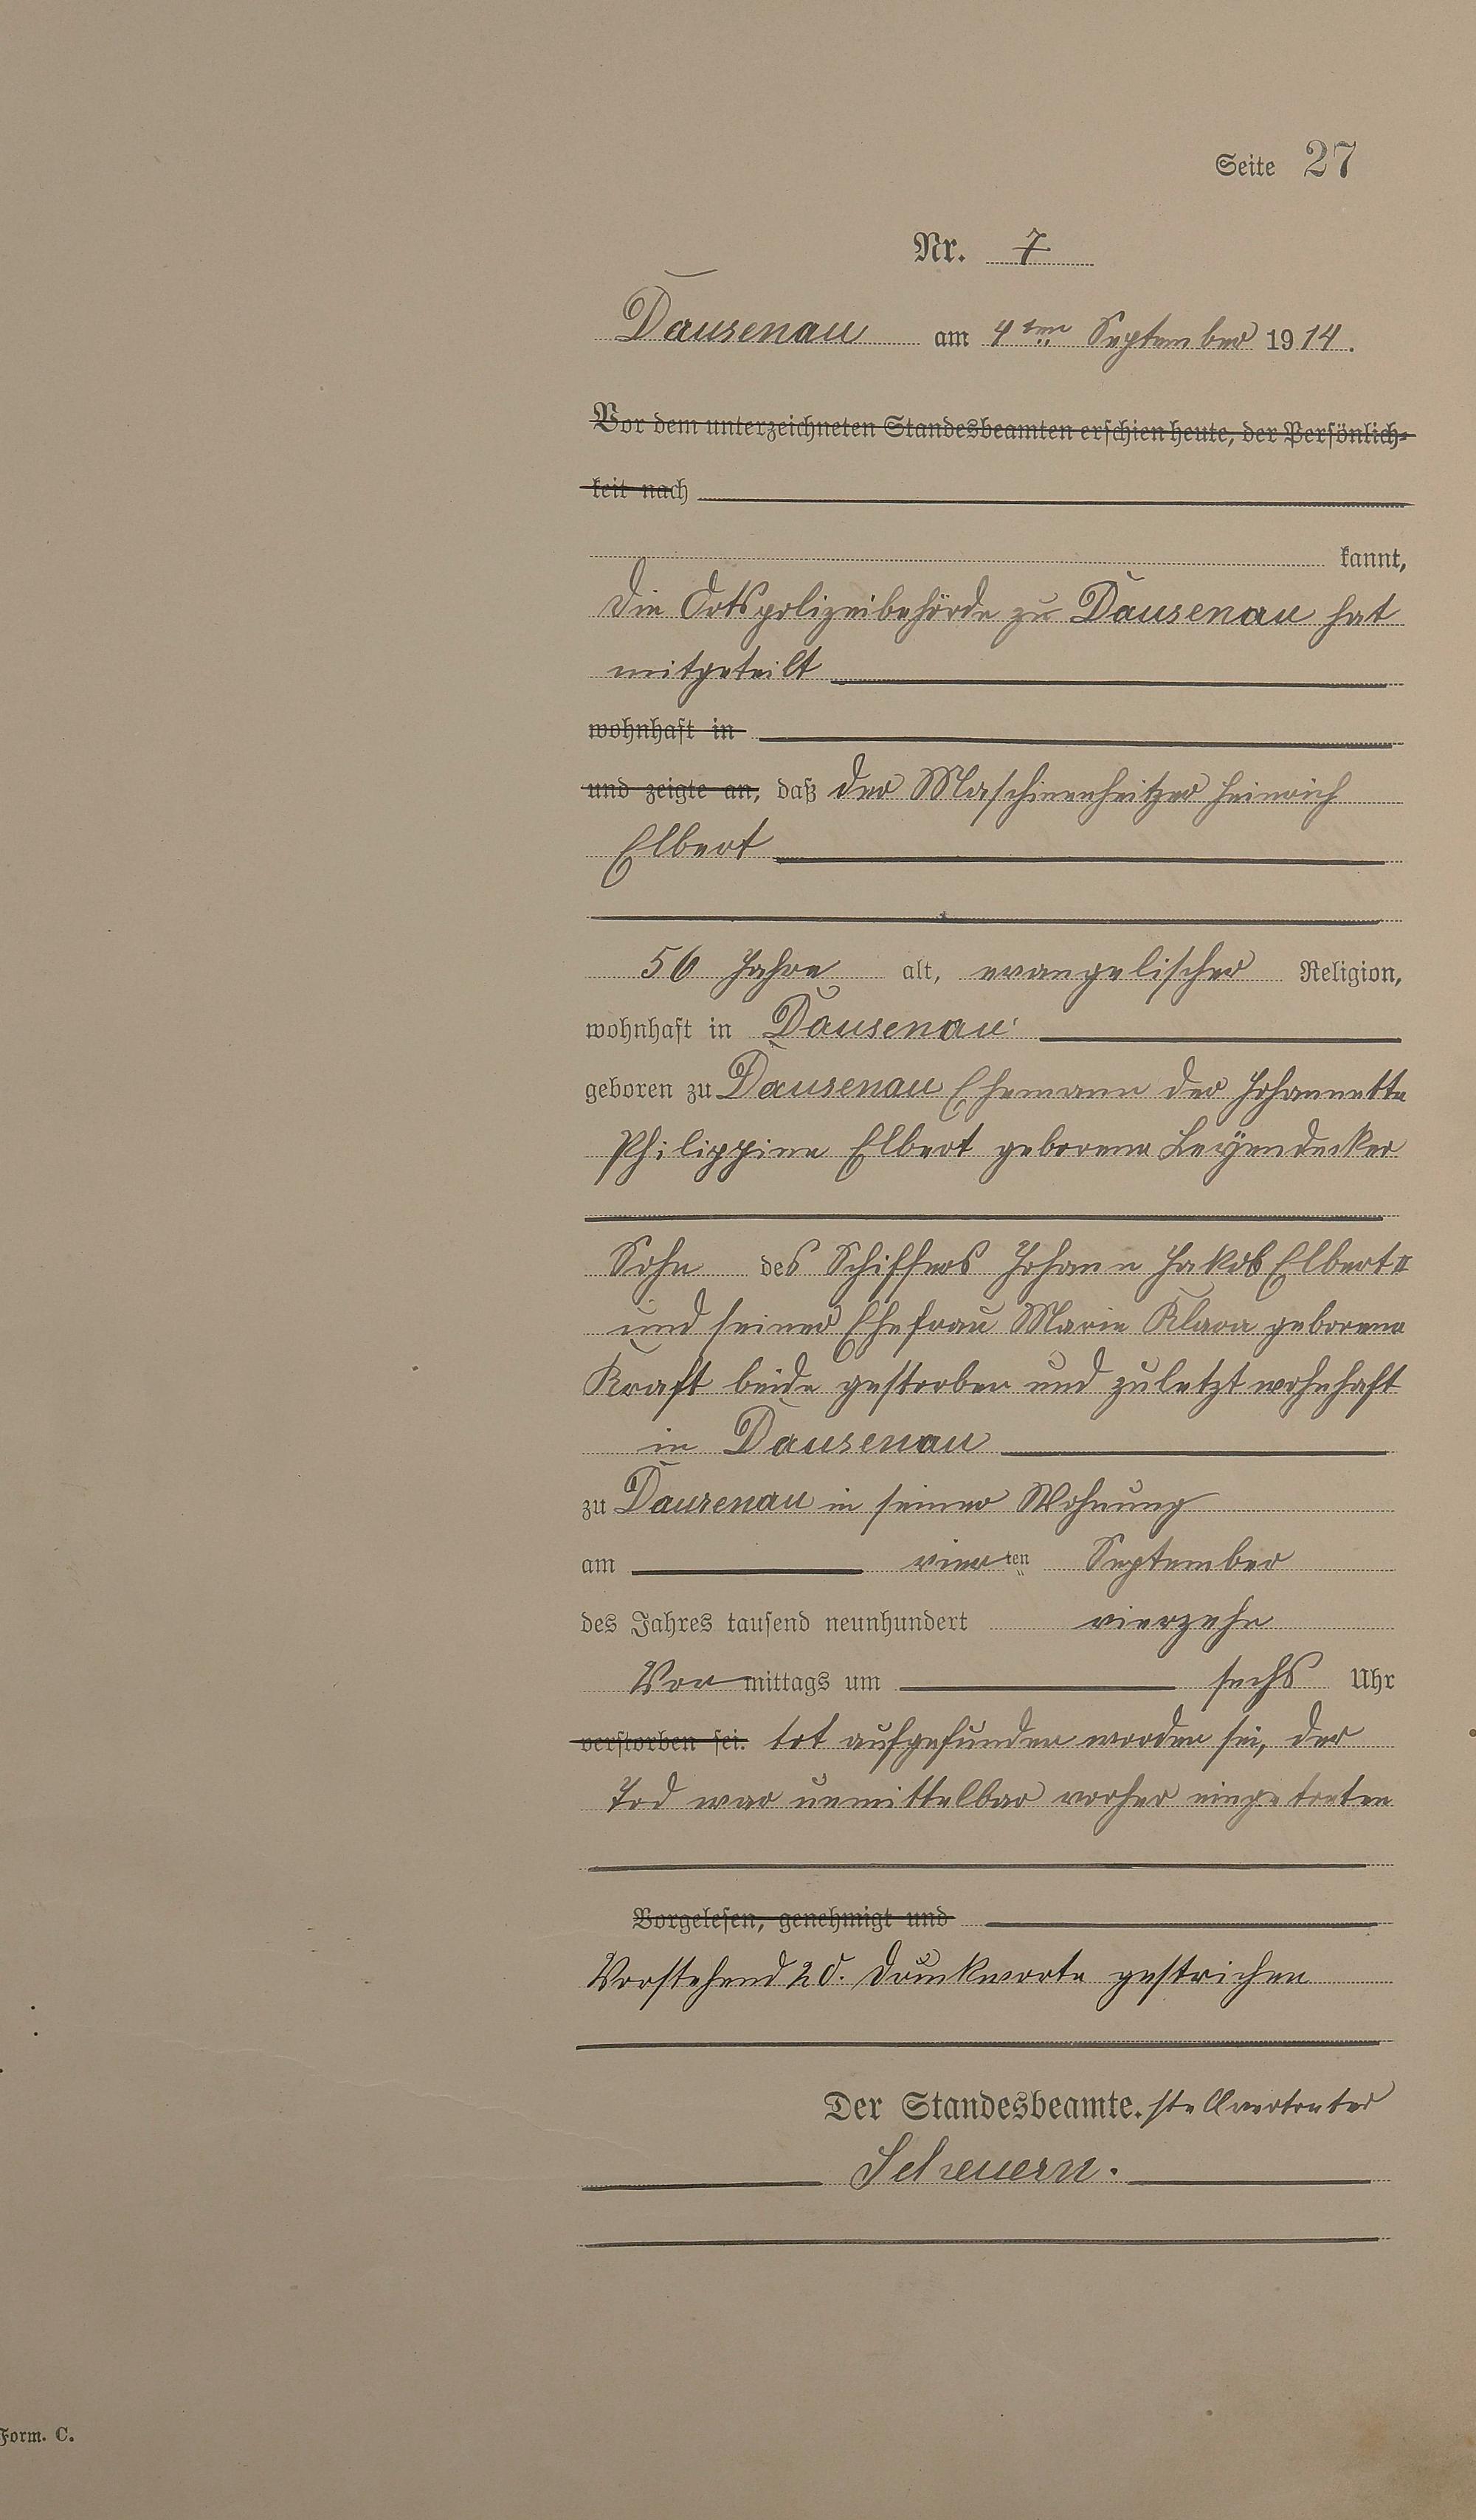 Seite 27
Nr. 7
Dausenau am 4ten September 1914.
Vor dem unterzeichneten Standesbeamten erschien heute, der Persönlich-
keit nach
kannt,
die Ortspolizeibehörde zu Dausenau hat
mitgeteilt
wohnhaft in
und zeigte an, daß der Maschinenheitzer Heinrich
Elbert
56 Jahre alt, evangelischer Religion,
wohnhaft in Dausenau
geboren zu Dausenau Ehemann der Johannette
Philippine Elbert geborene Leÿendecker
Sohn des Schiffers Johann Jakob Elbert II
und seiner Ehefrau Marie Klara geborene
Kraft beide gestorben und zuletzt wohnhaft
in Dausenau
zu Dausenau in seiner Wohnung
am vierten September
des Jahres tausend neunhundert vierzehn
Vor mittags um sechs Uhr
verstorben sei. tot aufgefunden worden sei, der
Tod war unmittelbar vorher eingetreten
Vorgelesen, genehmigt und
Vorstehend 20. Druckworte gestrichen
Der Standesbeamte. stellvertreter
Scheuern.
Form. C.